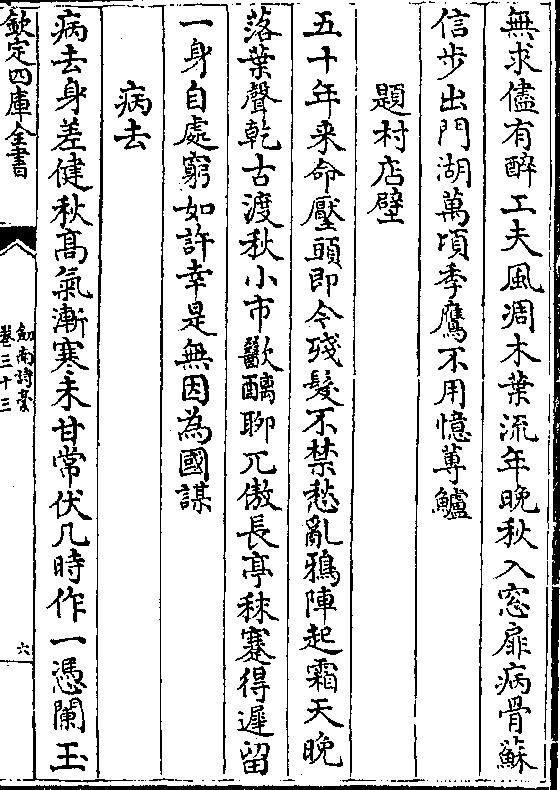 無求儘有醉工夫風凋木葉流年晚秋入窓扉病骨蘇
信步出門湖萬頃季鷹不用憶蓴鱸
題村店壁
五十年来命壓頭即今殘髮不禁愁亂鴉陣起霜天晚
落葉聲乾古渡秋小市歠醨聊兀傲長亭秣蹇得遲留
一身自處窮如許幸是無因為國謀
病去
病去身差健秋髙氣漸寒未甘常伏几時作一憑闌玉
欽定四庫全書
劍南詩稾
卷三十三
六